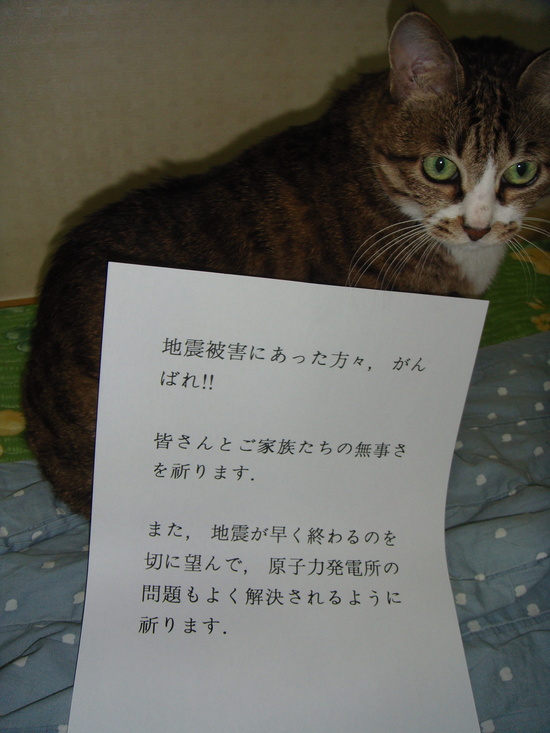 地震被害にあった方々, がん
ばれ!!
皆さんとご家族たちの無事さ
を祈ります.
また, 地震が早く終わるのを
切に望んで, 原子力発電所の
問題もよく解決されるように
祈ります.